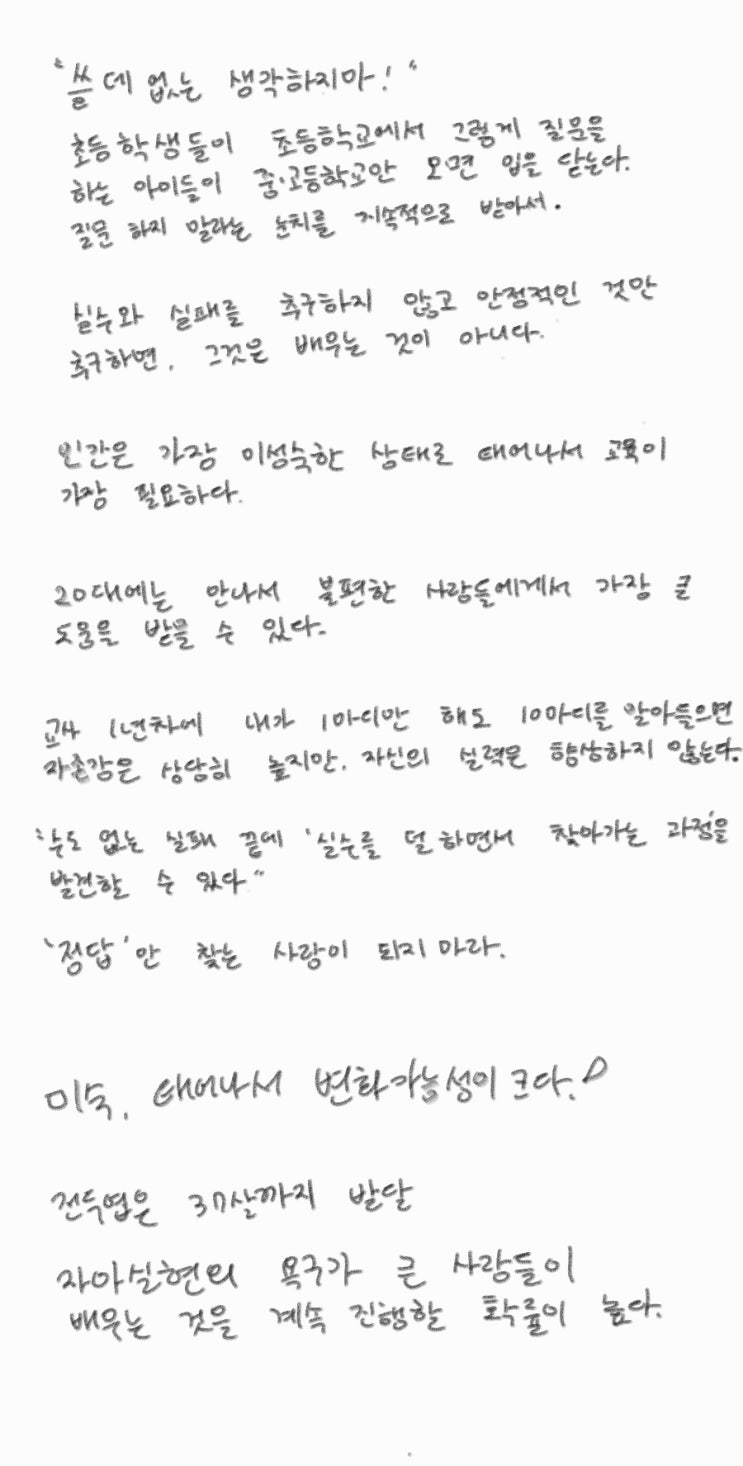 "쓸데 없는 생각하지마!"
초등학생들이 초등학교에서 그렇게 질문을
하는 아이들이 중·고등학교만 오면 입을 닫는다.
질문 하지 말라는 눈치를 지속적으로 받아서.
실수와 실패를 추구하지 않고 안정적인 것만
추구하면, 그것은 배우는 것이 아니다.
인간은 가장 미성숙한 상태로 태어나서 교육이
가장 필요하다.
20대에는 만나서 불편한 사람들에게서 가장 큰
도움을 받을 수 있다.
교사 1년차에 내가 1마디만 해도 10마디를 알아들으면
자존감은 상당히 높지만, 자신의 실력은 향상하지 않는다.
"수도 없는 실패 끝에 '실수를 덜 하면서 찾아가는 과정'을
발견할 수 있다"
'정답'만 찾는 사람이 되지 마라.
미숙, 태어나서 변화가능성이 크다.
전두엽은 30살까지 발달
자아실현의 욕구가 큰 사람들이
배우는 것을 계속 진행할 확률이 높다.